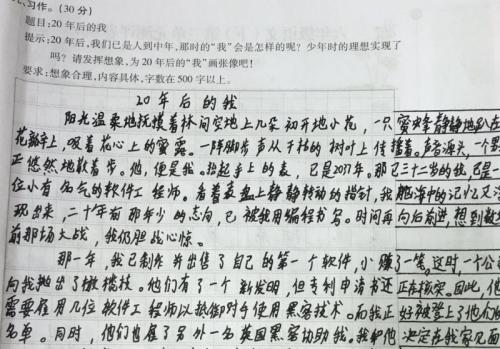 、习作。(30分)
题目:20年后的我
提示:20年后,我们已是人到中年,那时的“我”会是怎样的呢?少年时的理想实现了
吗?请发挥想象,为20年后的“我”画张像吧!
要求:想象合理,内容具体,字数在500字以上。
20年后的我
阳光温柔地抚摸着林间空地上几朵初开地小花,一只蜜蜂静静地趴在
花瓣上,吸着花心上的蜜露。一阵脚步声从干枯的树叶上传播着。声落源头,一个男
正悠然地散着步。他,便是我。抬起手上的表,已是2037年。那已三十二岁的我,已是一
位小有名气的软件工程师。看着表盘上静静转动的指针,我脑海中的记忆又浮
现出来,二十年前那年少的志向,已被我用编程书写。时间再向后前进,想到数
前那场大战,我仍胆战心惊。
那一年,我已制作并出售了自己的第一个软件,小赚了一笔,这时,一个公
向我抛出了橄榄枝。他们有了一个新发明,但专利申请书还正在核实。因此,他
需要雇用几位软件工程师以抵御对手使用黑客技术。而我正好被登上了他们的
名单。同时,他们也雇了另外一名英国黑客协助我。我和他决定在我家见面